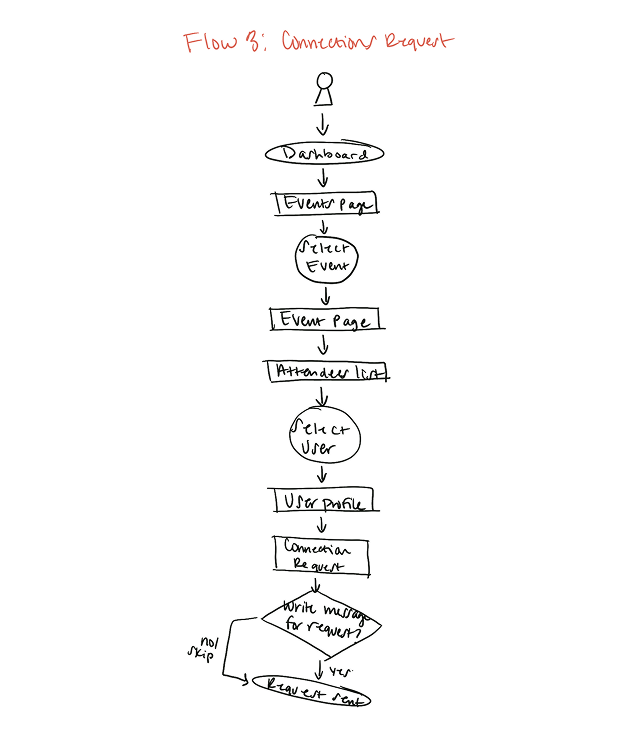 Flow 3: Connections Request
Dashboard
Events Page
Select
Event
Event Page
Attendees list
Select
User
User profile
Connection
Request
Write message
for request?
no/
skip
yes
Request sent